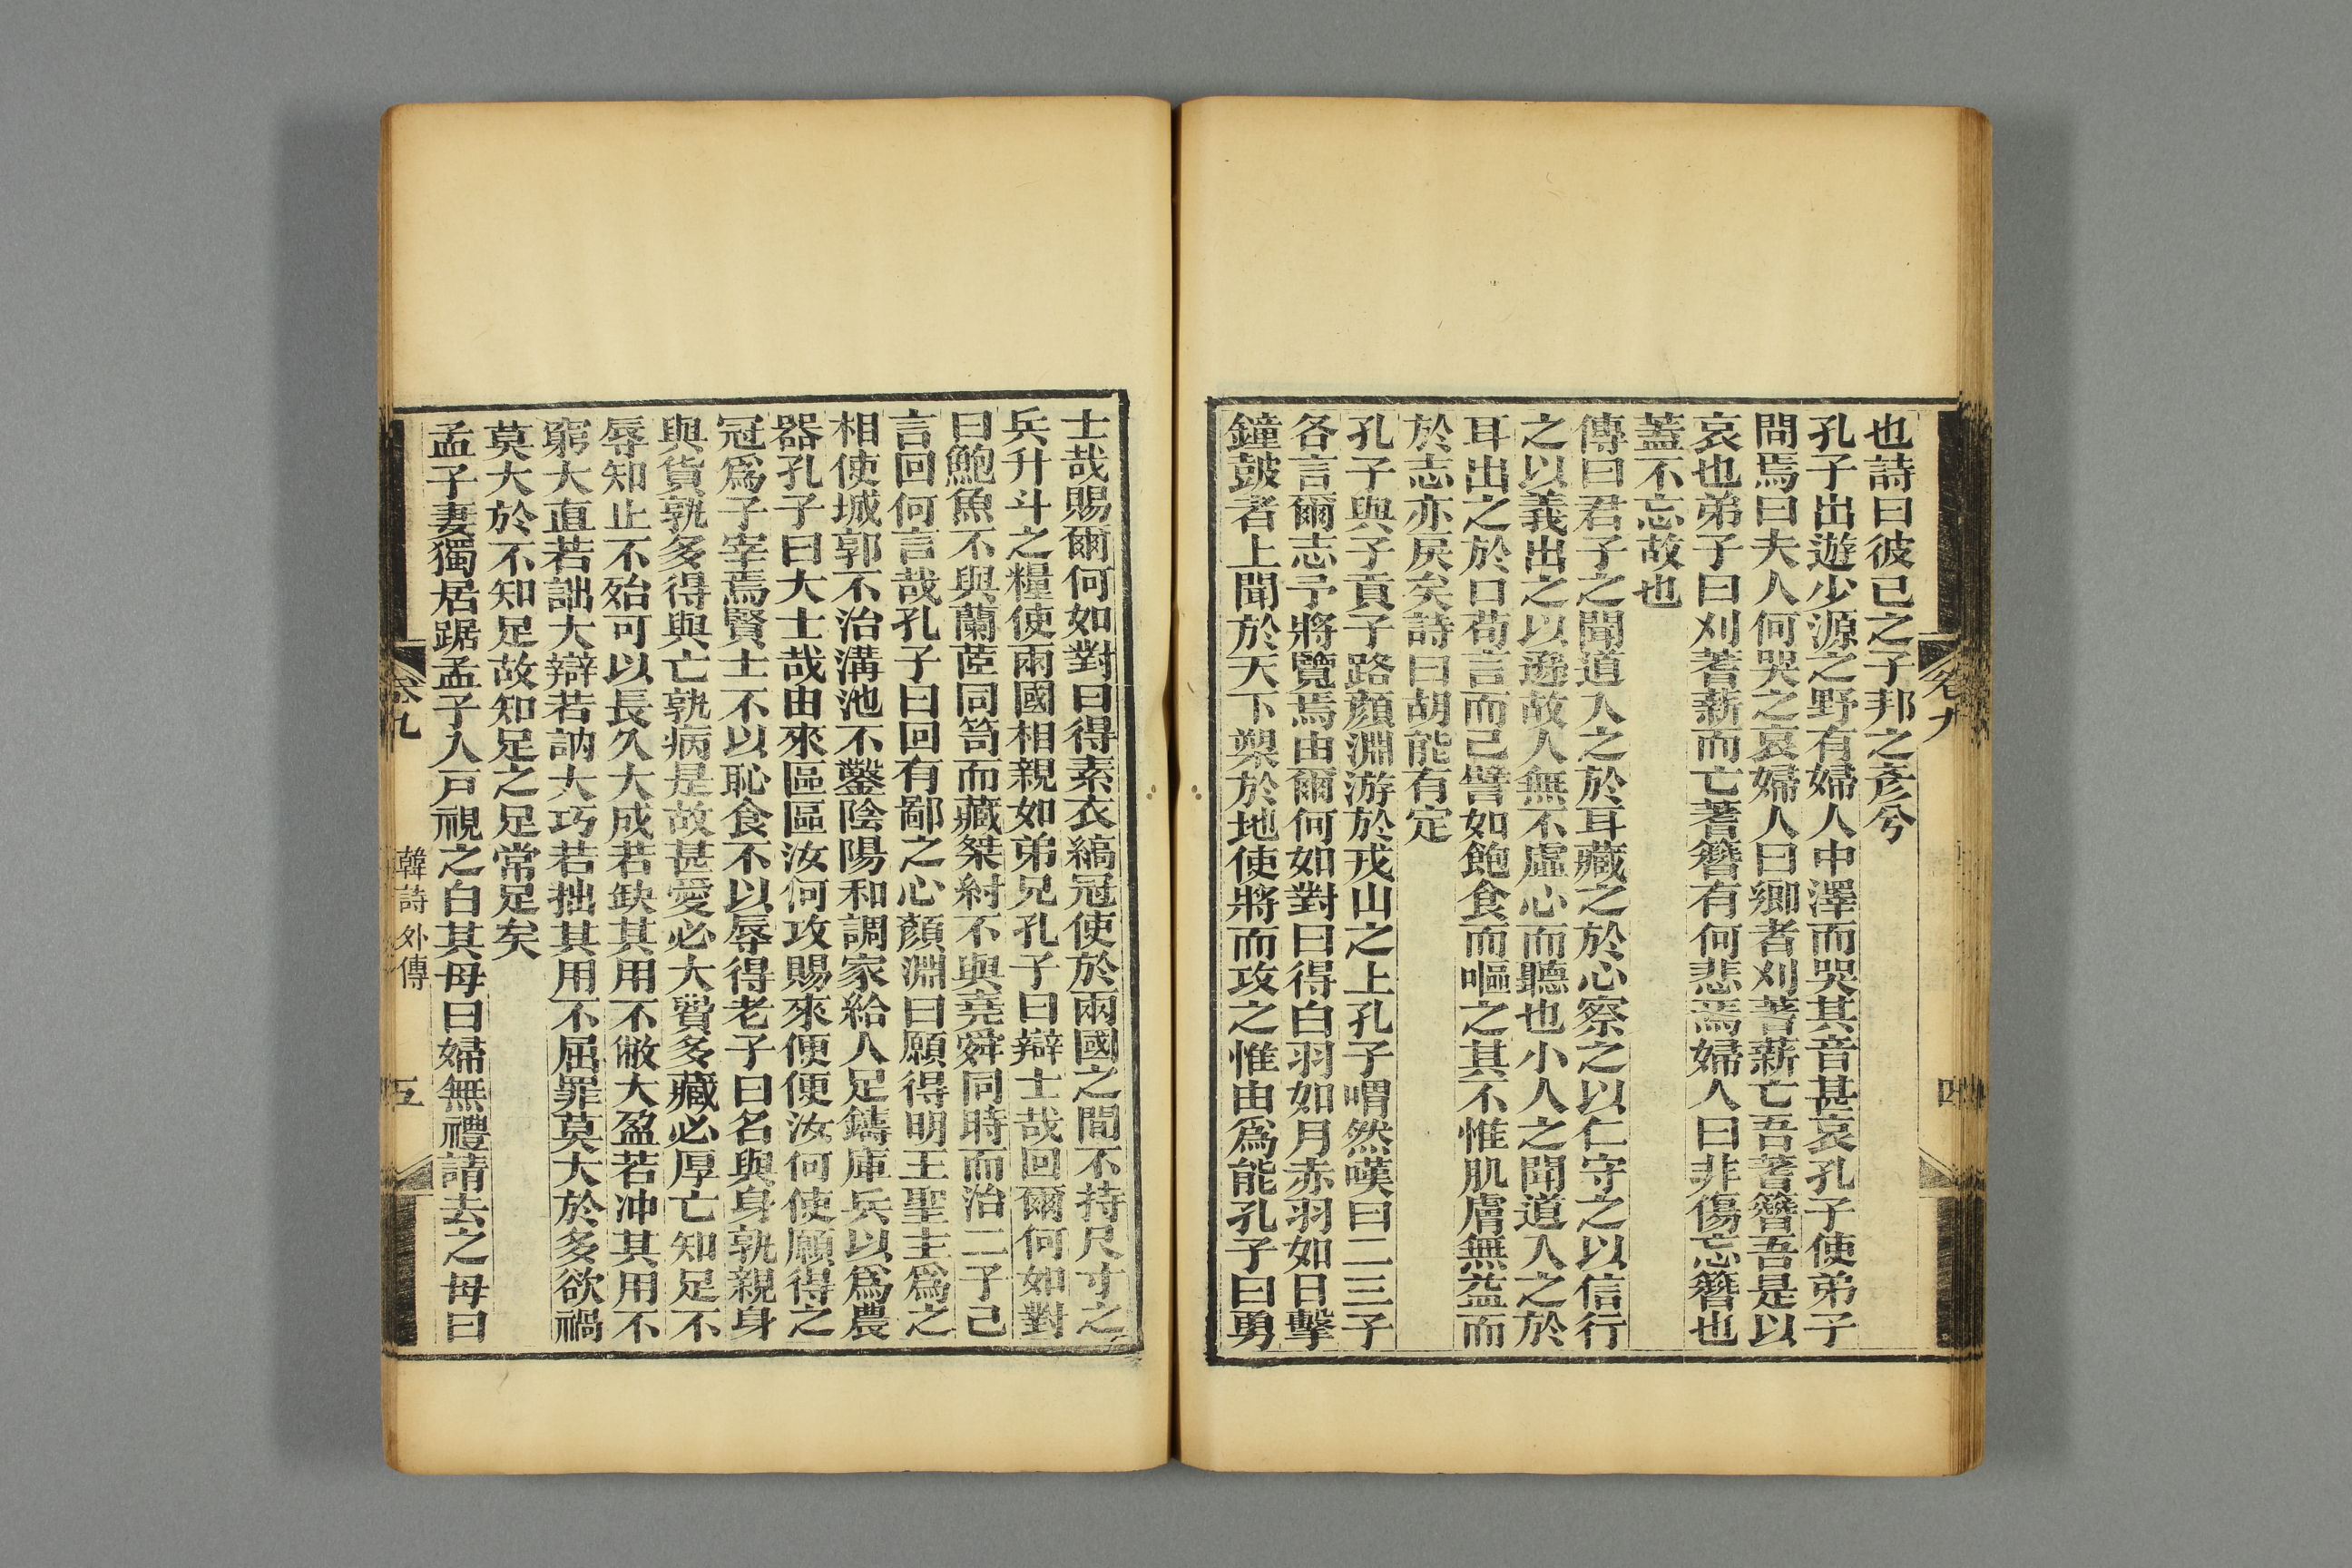 也詩曰彼己之子邦之彥兮
孔子出遊少源之野有婦人中澤而哭其音甚哀孔子使弟子
問焉曰夫人何哭之哀婦人曰鄉者刈蓍薪亡吾蓍簪吾是以
哀也弟子曰刈蓍薪而亡蓍簪有何悲焉婦人曰非傷忘簪也
蓋不忘故也
傳曰君子之聞道入之於耳藏之於心察之以仁守之以信行
之以義出之以遜故人無不虛心而聽也小人之聞道入之於
耳出之於口苟言而已譬如飽食而嘔之其不惟肌膚無益而
於志亦戾矣詩曰胡能有定
孔子與子貢子路顏淵游於戎山之上孔子喟然嘆曰二三子
各言爾志予將覽焉由爾何如對曰得白羽如月赤羽如日擊
鐘鼓者上聞於天下槊於地使將而攻之惟由爲能孔子曰勇
士哉賜爾何如對曰得素衣縞冠使於兩國之間不持尺寸之
兵升斗之糧使兩國相親如弟兄孔子曰辯士哉回爾何如對
曰鮑魚不與蘭茝同笥而藏桀紂不與堯舜同時而治二子己
言回何言哉孔子曰回有鄙之心顏淵曰願得明王聖主爲之
相使城郭不治溝池不鑿陰陽和調家給人足鑄庫兵以爲農
器孔子曰大士哉由來區區汝何攻賜來便便汝何使願得之
冠爲子宰焉賢士不以恥食不以辱得老子曰名與身孰親身
與貨孰多得與亡孰病是故甚愛必大費多藏必厚亡知足不
辱知止不殆可以長久大成若缺其用不敝大盈若冲其用不
窮大直若詘大辯若訥大巧若拙其用不屈罪莫大於多欲禍
莫大於不知足故知足之足常足矣
孟子妻獨居踞孟子入戶視之白其母曰婦無禮請去之母曰
卷九
韓詩外傳
五
卷九
四